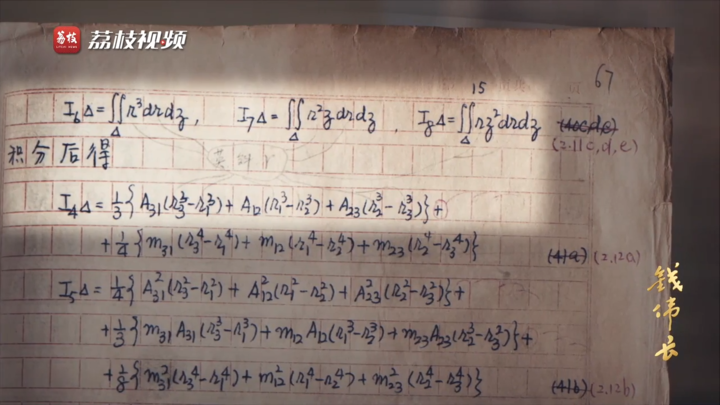 荔枝 荔枝视频
15
67
I₆Δ = ∬_Δ r³drdz, I₇Δ = ∬_Δ r²zdrdz, I₈Δ = ∬_Δ rz²drdz (40c,d,e)
(2.11c,d,e)
积分后得
I₄Δ = 1/3{A₃₁(r₃³-r₁³)+A₁₂(r₁³-r₂³)+A₂₃(r₂³-r₃³)}+
+1/4{m₃₁(r₃⁴-r₁⁴)+m₁₂(r₁⁴-r₂⁴)+m₂₃(r₂⁴-r₃⁴)} (41a) (2.12a)
I₅Δ = 1/4{A₃₁²(r₃²-r₁²)+A₁₂²(r₁²-r₂²)+A₂₃²(r₂²-r₃²)}+
+1/3{m₃₁A₃₁(r₃³-r₁³)+m₁₂A₁₂(r₁³-r₂³)+m₂₃A₂₃(r₂³-r₃³)}+
+1/8{m₃₁²(r₃⁴-r₁⁴)+m₁₂²(r₁⁴-r₂⁴)+m₂₃²(r₂⁴-r₃⁴)} (41b) (2.12b)
钱伟长